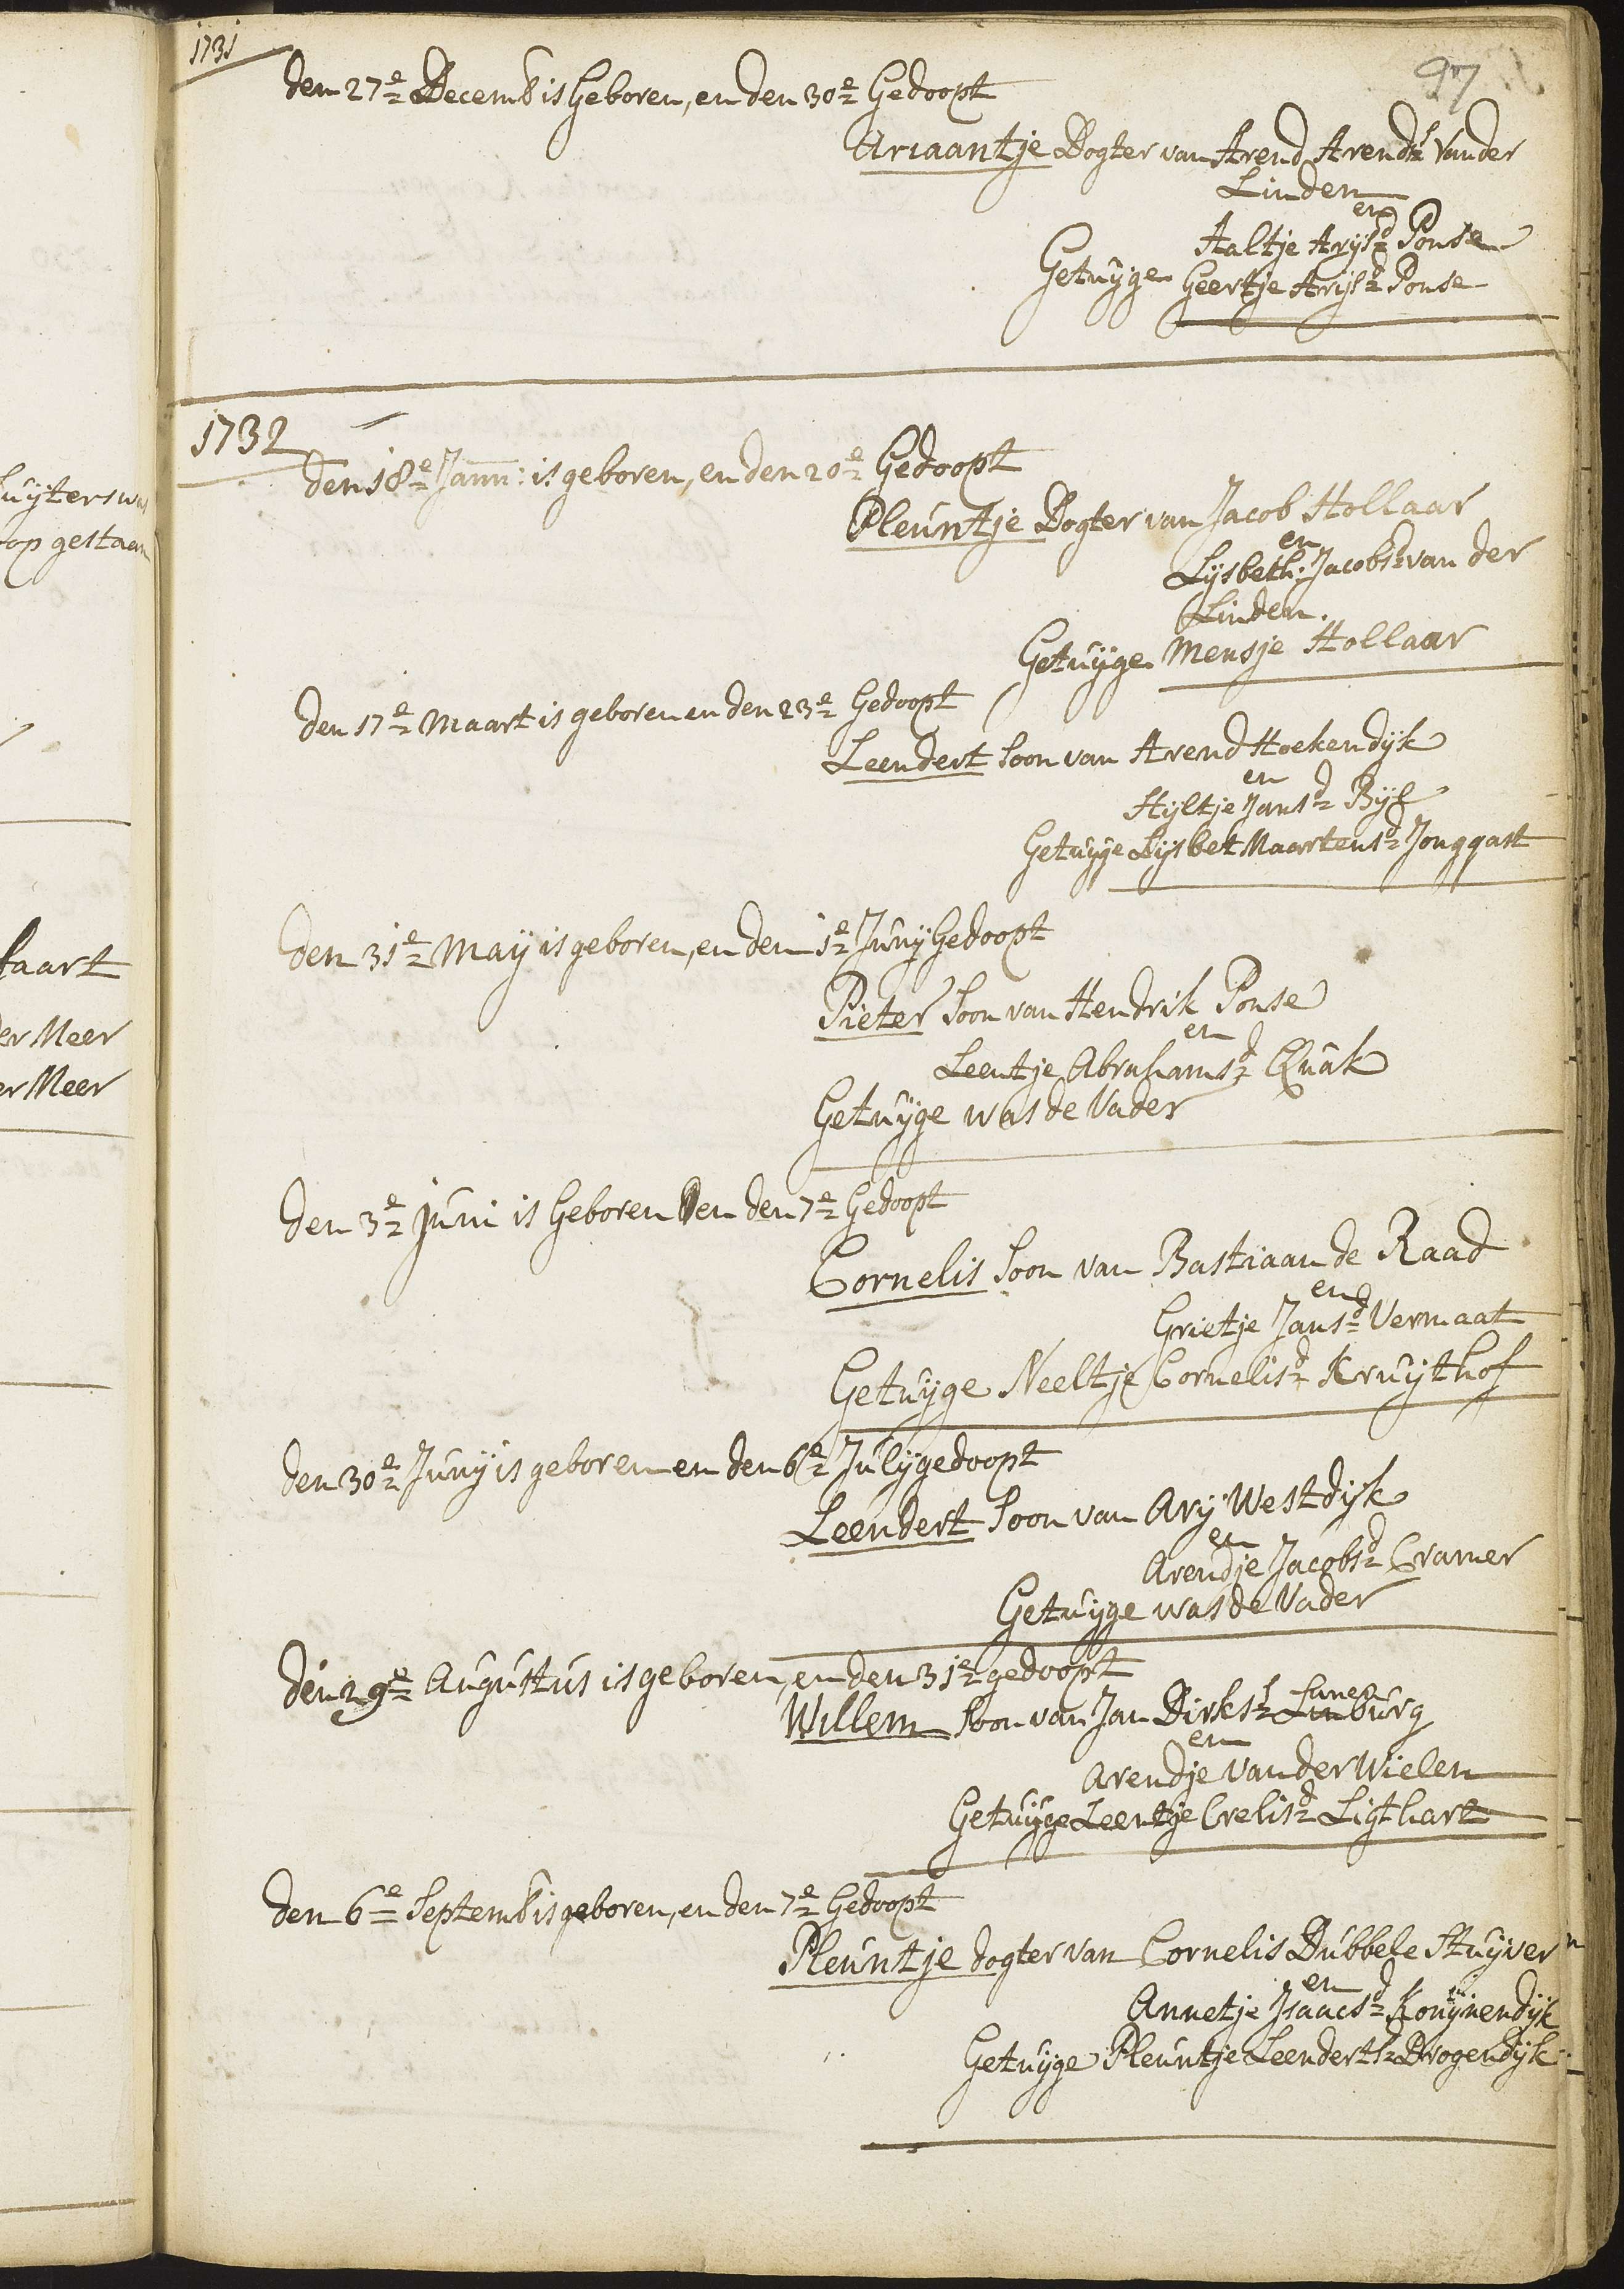 1731
97
den 27e Decemb is Geboren, en den 30e Gedoopt
Ariaantje Dogter van Arend Arendsz Vander
Linden
en
Aaltje Arijsd Ponse
Getuyge Geertje Arijsd Ponse
1732
den 18e Jann: is geboren, en den 20e Gedoopt
Pleuntje Dogter van Jacob Hollaar
en
Lijsbeth: Jacobsd van der
Linden.
Getuyge Mensje Hollaar
den 17e Maart is geboren en den 23e Gedoopt
Leendert Soon van Arend Hoekendijk
en
Hijltje Jansd Bijl
Getuyge Lijsbet Maartensd Jonggast
den 31e Maij is geboren, en den 1e Junij Gedoopt
Pieter Soon van Hendrik Ponse
en
Leentje Abrahamsd Quak
Getuyge was de Vader
den 3e Juni is Geboren en den 7e Gedoopt
Cornelis Soon van Bastiaan de Raad
en
Grietje Jansd Vermaat
Getuyge Neeltje Cornelisd Kruijthof
den 30e Junij is geboren en den 6e Julij gedoopt
Leendert Soon van Arij Westdijk
en
Arendje Jacobsd Cramer
Getuyge was de Vader
den 29e Augustus is geboren, en den 31e gedoopt
Willem Soon van Jan Dirksz burg
en
Arendje van der Wielen
Getuyge Leentje Crelisd Ligthart
den 6e Septemb is geboren, en den 7e Gedoopt
Pleuntje dogter van Cornelis Dubbele Stuijver
en
Annetje Isaacsd Konijnendijk
Getuyge Pleuntje Leendertsd Drogendijk
uijters
op gestaan
aart
der Meer
er Meer